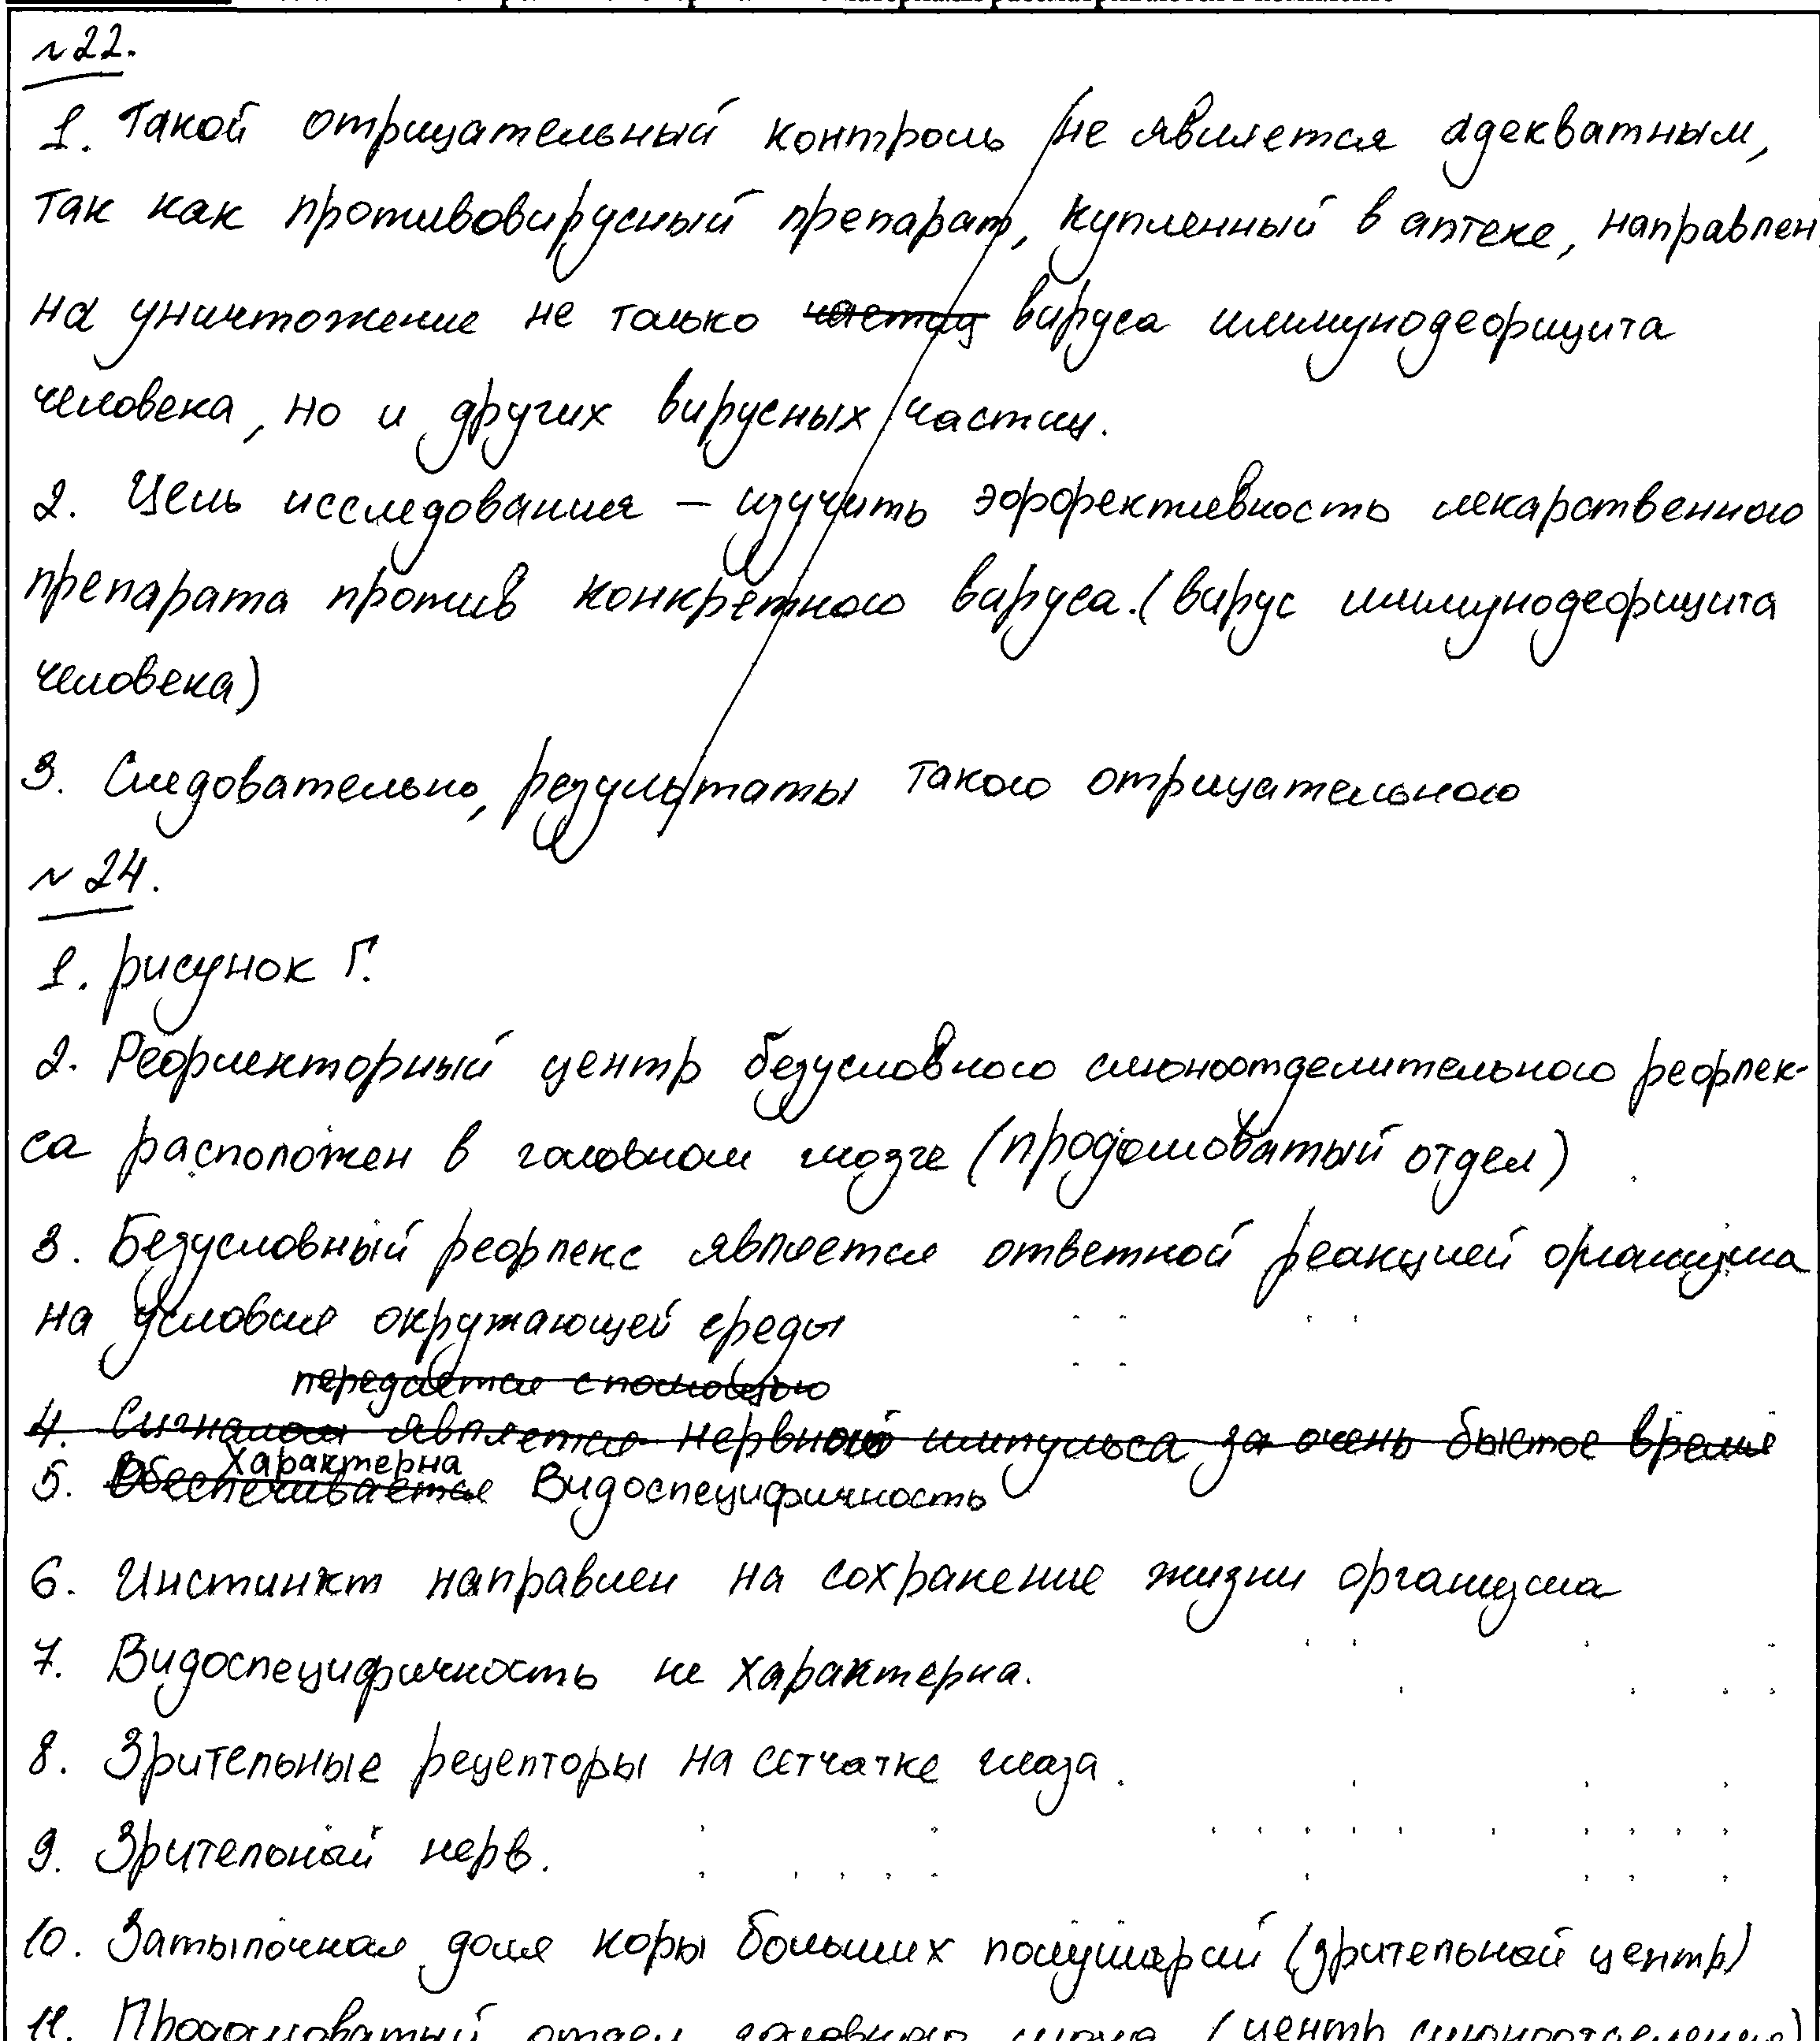 материалы рассматриваются в комплекте
№22.
1. Такой отрицательный контроль не является адекватным,
так как противовирусный препарат, купленный в аптеке, направлен
на уничтожение не только частиц вируса иммунодефицита
человека, но и других вирусных частиц.
2. Цель исследования – изучить эффективность лекарственного
препарата против конкретного вируса. (вирус иммунодефицита
человека)
3. Следовательно, результаты такого отрицательного
№24.
1. рисунок Г.
2. Рефлекторный центр безусловного слюноотделительного рефлек-
са расположен в головном мозге (продолговатый отдел)
3. Безусловный рефлекс является ответной реакцией организма
на условия окружающей среды
передаётся с помощью
4. Сигналом является нервного импульса за очень быстое время
Характерна
5. Обеспечивается Видоспецифичность
6. Инстинкт направлен на сохранение жизни организма
7. Видоспецифичность не характерна.
8. Зрительные рецепторы на сетчатке глаза.
9. Зрительный нерв.
10. Затылочная доля коры больших полушарий (зрительный центр)
11. Продолговатый отдел головного мозга (центр слюноотделения)